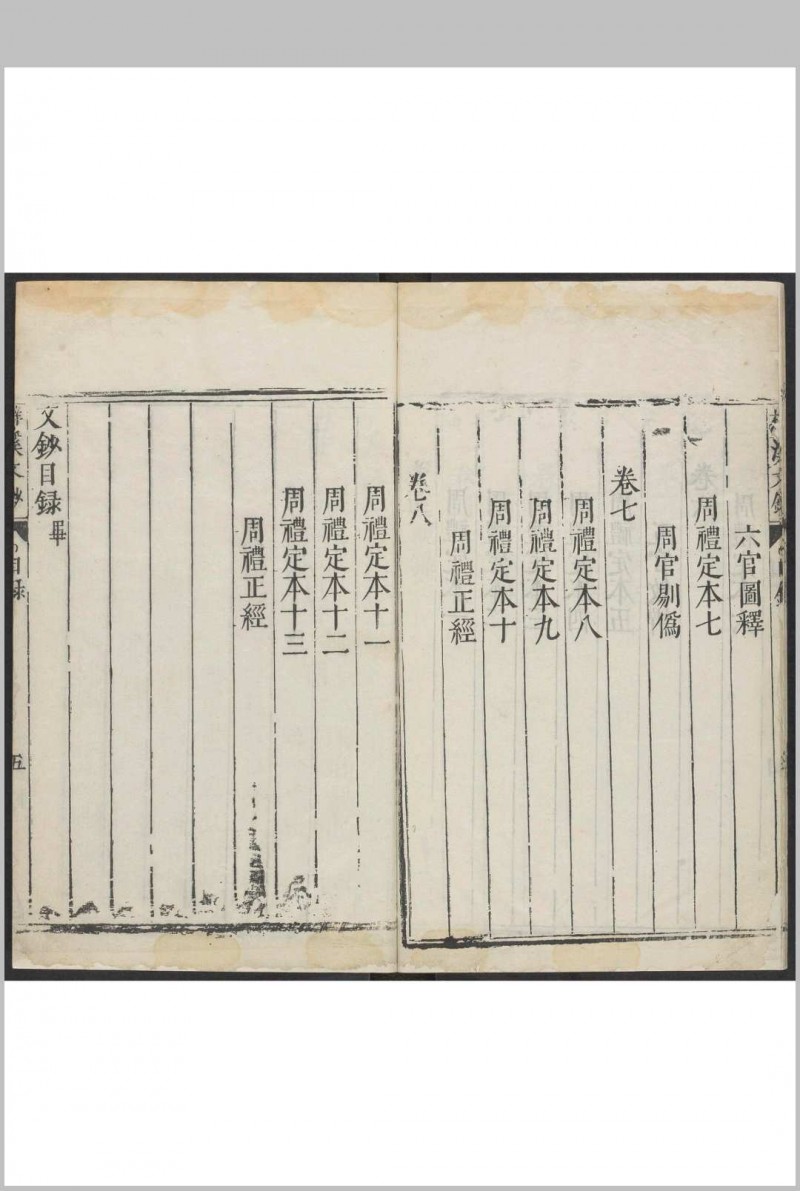 六官圖釋
周禮定本七
周官剔僞
卷七
周禮定本八
周禮定本九
周禮定本十
周禮正經
卷八
周禮定本十一
周禮定本十二
周禮定本十三
周禮正經
文鈔目録畢
梓溪文鈔 目録 五